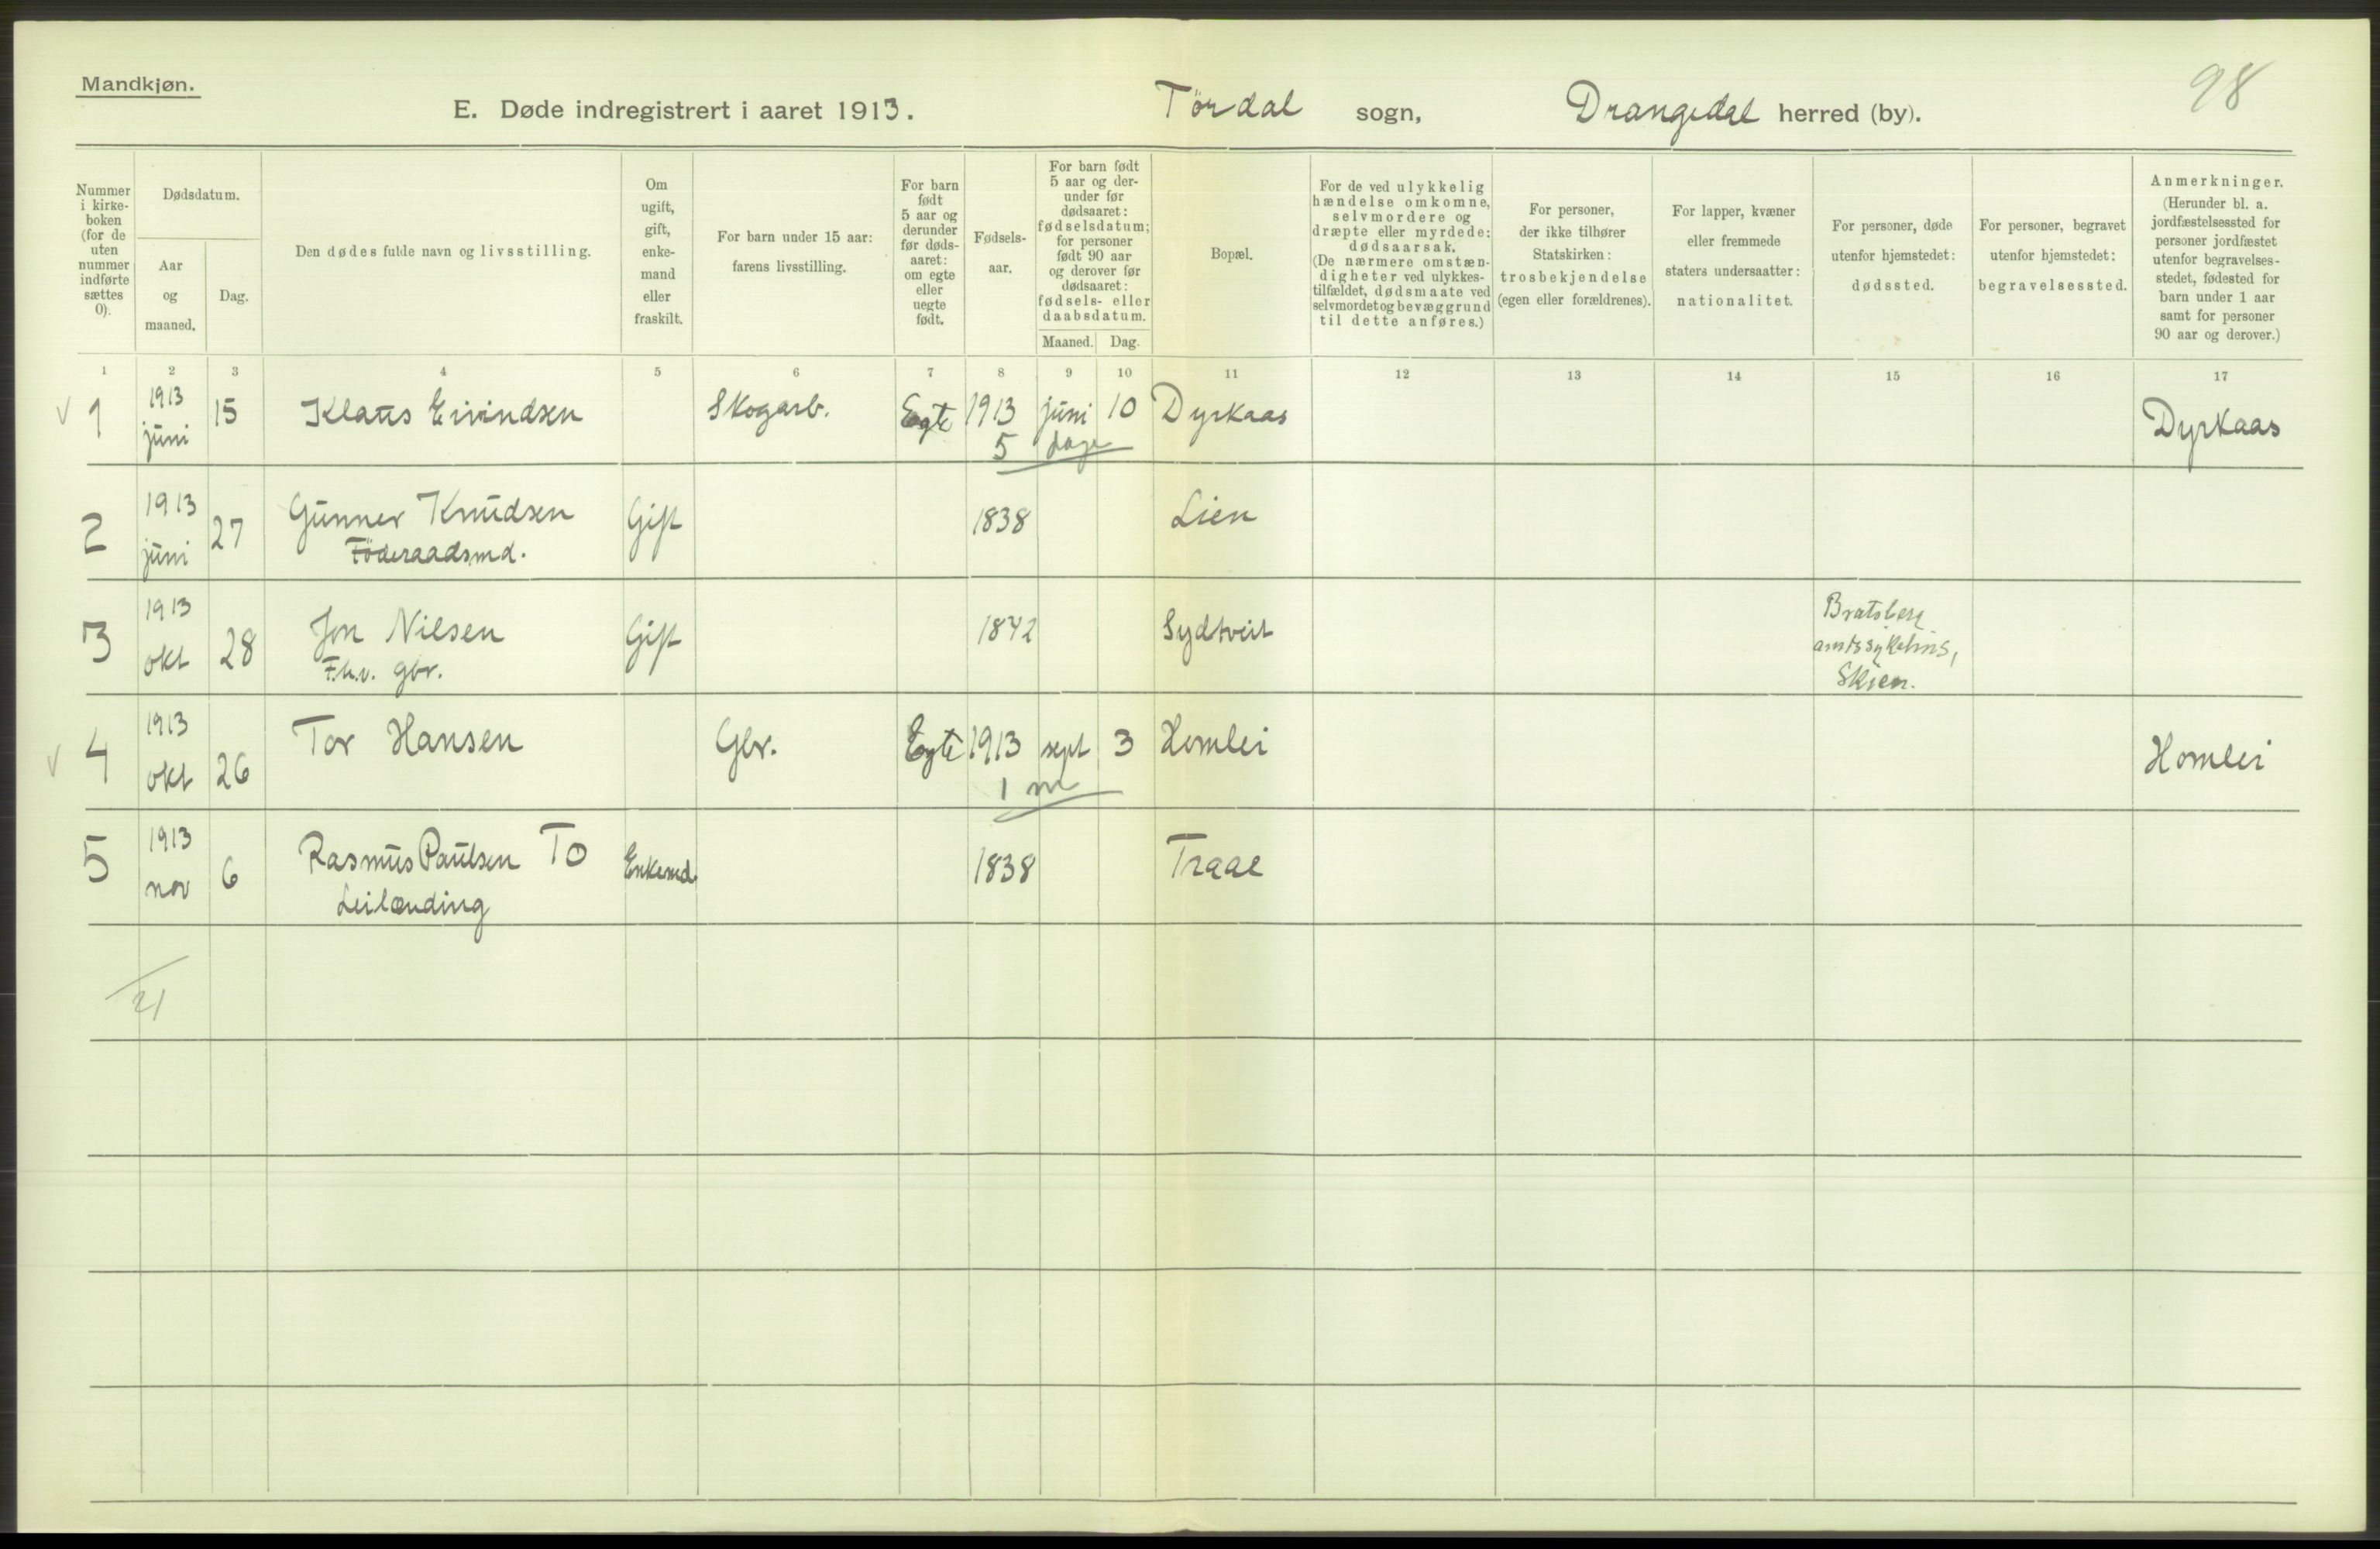 Mandkjøn.
E. Døde indregistrert i aaret 1913. Tördal sogn, Drangedal herred (by).
98
Nummer i kirke-boken (for de uten nummer indførte sættes 0).
Dødsdatum.
Aar og maaned.
Dag.
Den dødes fulde navn og livsstilling.
Om ugift, gift, enke-mand eller fraskilt.
For barn under 15 aar: farens livsstilling.
For barn født 5 aar og derunder før døds-aaret: om egte eller uegte født.
Fødsels-aar.
For barn født 5 aar og der-under før dødsaaret: fødselsdatum; for personer født 90 aar og derover før dødsaaret: fødsels- eller daabsdatum.
Maaned. Dag.
Bopæl.
For de ved ulykkelig hændelse omkomne, selvmordere og dræpte eller myrdede: dødsaarsak. (De nærmere omstæn-digheter ved ulykkes-tilfældet, dødsmaate ved selvmordet og bevæggrund til dette anføres.)
For personer, der ikke tilhører Statskirken: trosbekjendelse (egen eller forældrenes).
For lapper, kvæner eller fremmede staters undersaatter: nationalitet.
For personer, døde utenfor hjemstedet: dødssted.
For personer, begravet utenfor hjemstedet: begravelsessted.
Anmerkninger. (Herunder bl. a. jordfæstelsessted for personer jordfæstet utenfor begravelses-stedet, fødested for barn under 1 aar samt for personer 90 aar og derover.)
1 2 3 4 5 6 7 8 9 10 11 12 13 14 15 16 17
√ 1 1913 juni 15 Klaus Eivindsen Skogarb. Egte 1913 juni 10 Dyrkaas Dyrkaas
5 dage
2 1913 juni 27 Gunner Knudsen Gift 1838 Lien
Föderaadsmd.
3 1913 okt 28 Jon Nilsen Gift 1842 Sydtveit Bratsberg amtssykehus, Skien.
F.h.v. gbr.
√ 4 1913 okt 26 Tor Hansen Gbr. Egte 1913 sept 3 Homlei Homlei
1 m
5 1913 nov 6 Rasmus Paulsen To Enkemd. 1838 Traae
Leilænding
21